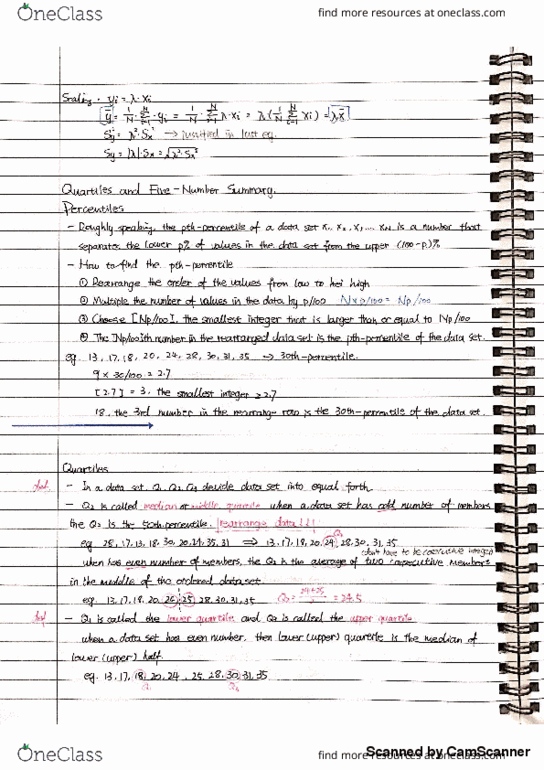 OneClass
find more resources at oneclass.com
Scaling · yi = λ·xi
ȳ = 1/N · Σ yi = 1/N · Σ λ·xi = λ(1/N Σ xi) = λx̄
Sy² = λ²·Sx² → justified in last eq.
Sy = |λ|·Sx = √λ²·Sx²
Quartiles and Five-Number Summary.
Percentiles
- Roughly speaking, the pth-percentile of a data set x1, x2, x3, ... xN is a number that
separates the lower p% of values in the data set from the upper (100-p)%
- How to find the pth-percentile
① Rearrange the order of the values from low to high
② Multiple the number of values in the data by p/100 N×p/100 = Np/100
③ Choose ⌈Np/100⌉, the smallest integer that is larger than or equal to Np/100
④ The ⌈Np/100⌉th number in the rearranged data set is the pth-percentile of the data set.
eg. 13, 17, 18, 20, 24, 28, 30, 31, 35 → 30th-percentile.
9 × 30/100 = 2.7
⌈2.7⌉ = 3. the smallest integer ≥ 2.7
18, the 3rd number in the rearrange row is the 30th-percentile of the data set.
Quartiles
- In a data set, Q1 Q2 Q3 devide data set into equal forth.
- Q2 is called median or middle quartile when a data set has odd number of members
the Q2 is the 50th-percentile. rearrange data!!!
eg. 28, 17, 13, 18, 30, 20, 24, 35, 31 ⇒ 13, 17, 18, 20, 24, 28, 30, 31, 35
Q2
don't have to be consecutive integer
when has even number of members, the Q2 is the average of two consecutive members
in the middle of the ordered data set.
eg. 13, 17, 18, 20, 24, 25, 28, 30, 31, 35 Q2 = 24+25/2 = 24.5
- Q1 is called the lower quartile and Q3 is called the upper quartile
when a data set has even number, then lower (upper) quartile is the median of
lower (upper) half.
eg. 13, 17, 18, 20, 24, 25, 28, 30, 31, 35
Q1 Q3
OneClass
find more resources at oneclass.com
Scanned by CamScanner